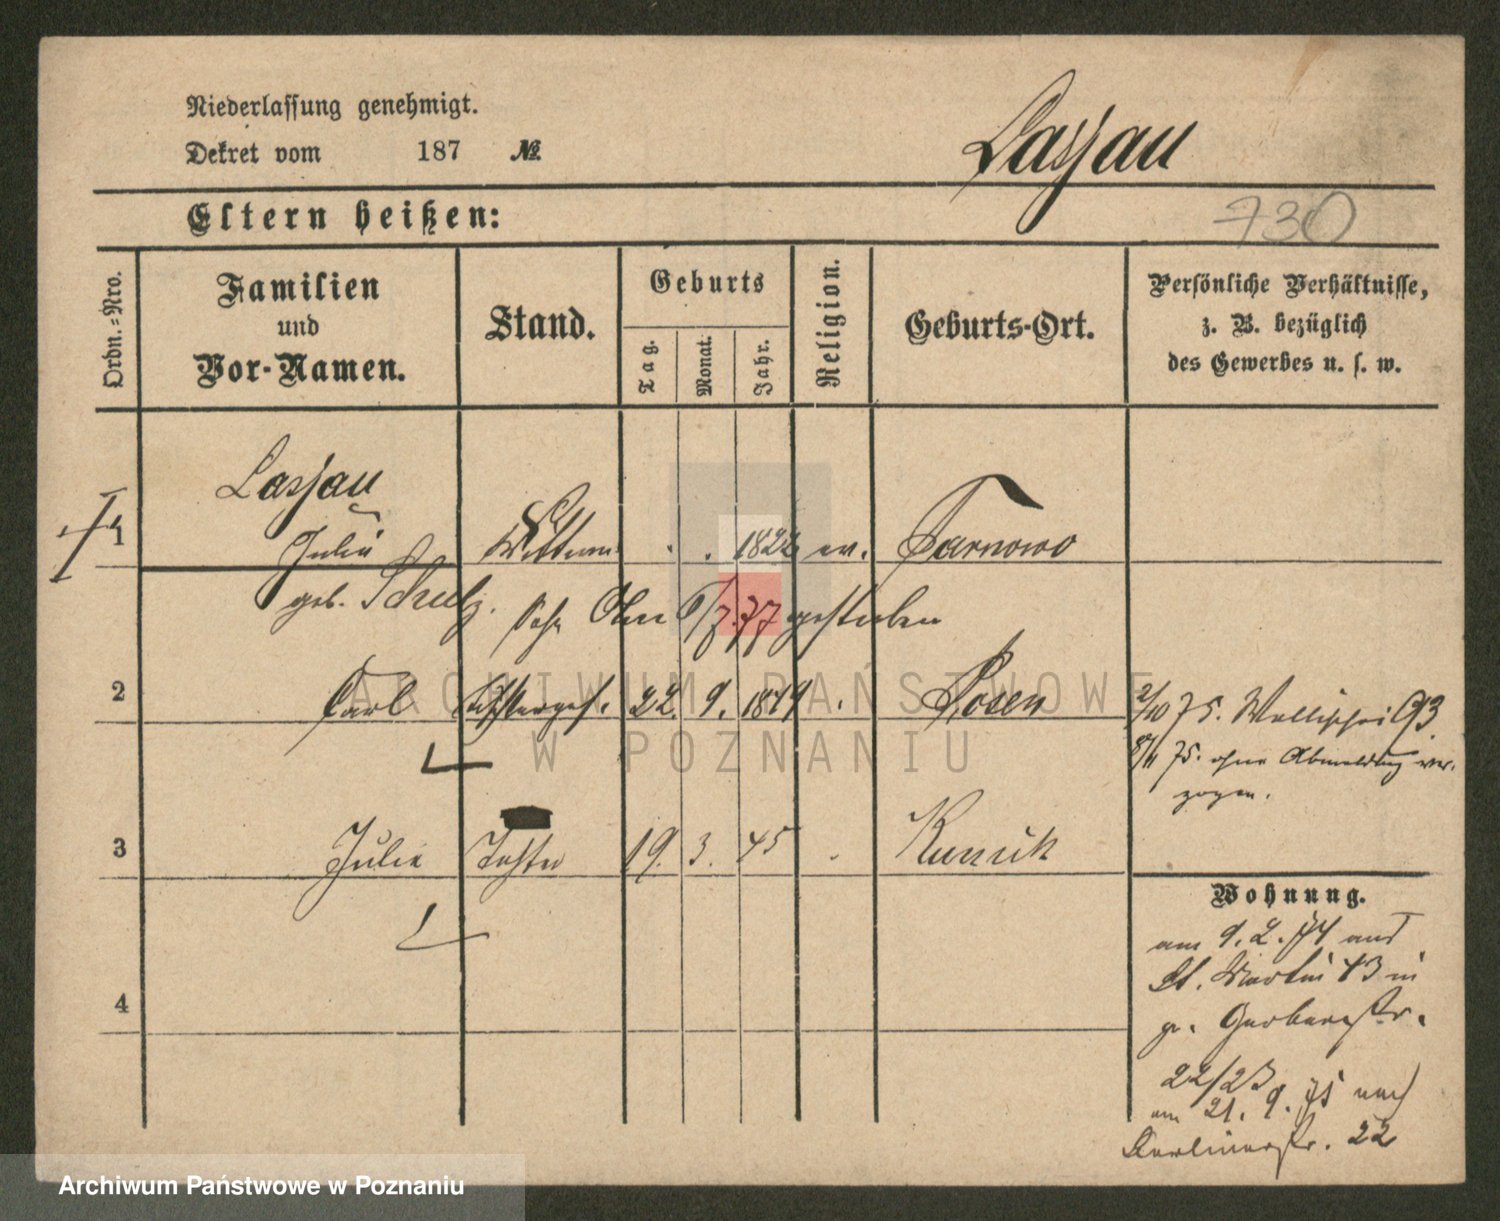 Niederlassung genehmigt.
Dekret vom 187 №
Lassau
Eltern heißen:
730
Ordn.-Nro.
Familien und Vor-Namen.
Stand.
Geburts
Tag.
Monat.
Jahr.
Religion.
Geburts-Ort.
Persönliche Verhältnisse,
z. B. bezüglich
des Gewerbes u. s. w.
Lassau
1 Julie Wittwe . . 1822 ev. Tarnowo
geb. Schulz. 77 gestorben
2 Carl 22. 9. 1849 . Posen
2/10 75. Wallischei 93.
8/11 75. ohne Abmeldung ver-
zogen.
3 Julie Tochter 19. 3. 45 .
Wohnung.
am 9. 2. 74 aus
St. Martin 73 in
gr. Gerberstr.
22/23
am 21. 9. 75 nach
Berlinerstr. 22
4
ARCHIWUM PAŃSTWOWE
W POZNANIU
Archiwum Państwowe w Poznaniu